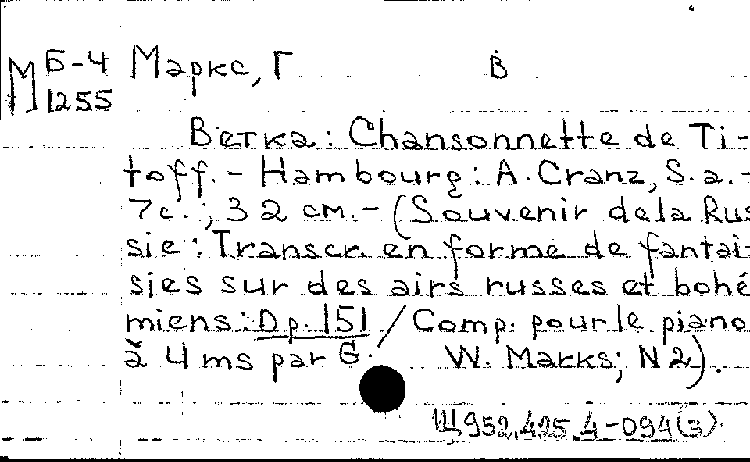 М Б-4 Маркс, Г В
1255
Ветка: Chansonnette de Ti-
toff. - Hambourg: A. Cranz, S. a. -
7с.; 32 см. - (Souvenir de la Rus
sie: Transcr. en forme de fantai-
sies sur des airs russes et bohé
miens: Op. 151 / Comp. pour le piano
à 4 ms par G. W. Marks; N 2).
Щ952.425.4-094(3)